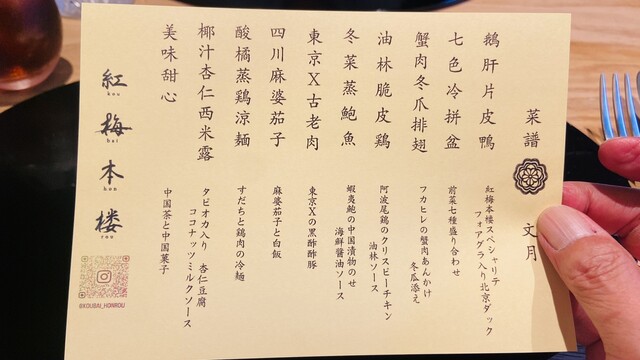 菜譜
文月
鵝肝片皮鴨
紅梅本楼スペシャリテ
フォアグラ入り北京ダック
七色冷拼盆
前菜七種盛り合わせ
蟹肉冬爪排翅
フカヒレの蟹肉あんかけ
冬瓜添え
油林脆皮鶏
阿波尾鶏のクリスピーチキン
油林ソース
冬菜蒸鮑魚
蝦夷鮑の中国漬物のせ
海鮮醤油ソース
東京X古老肉
東京Xの黒酢酢豚
四川麻婆茄子
麻婆茄子と白飯
酸橘蒸鶏涼麺
すだちと鶏肉の冷麺
椰汁杏仁西米露
タピオカ入り 杏仁豆腐
ココナッツミルクソース
美味甜心
中国茶と中国菓子
紅
kou
梅
bai
本
hon
楼
rou
@KOUBAI_HONROU